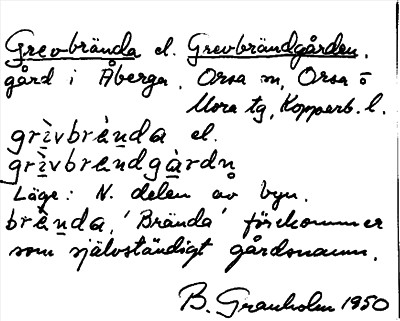 Grevbrända el. Grevbrändgården.
gård i Åberga, Orsa sn, Orsa o
Mora tg, Kopparb. l.
grìvbrànda el.
grìvbrandgàrdn̥
Läge: N. delen av byn.
brànda, 'Brända' förekommer
som självständigt gårdsnamn.
B. Granholm 1950